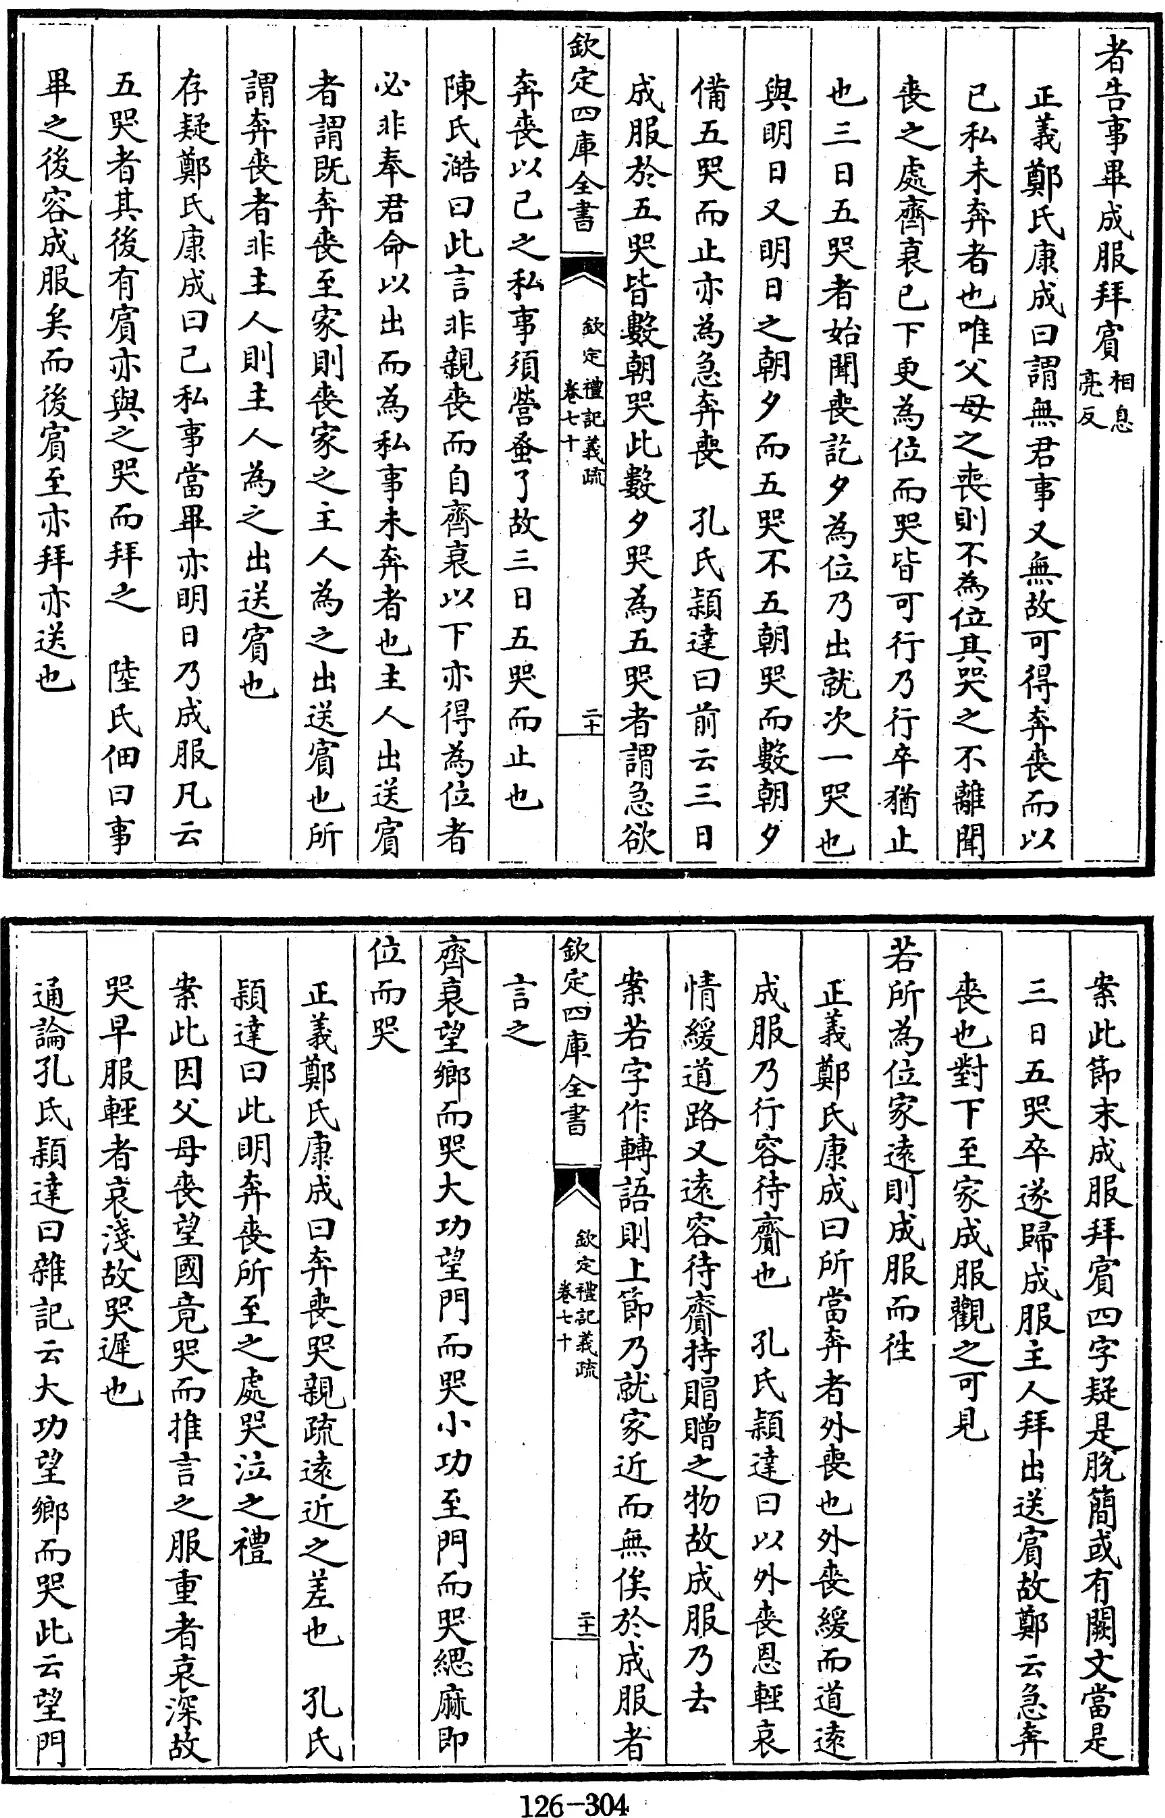 者告事畢成服拜賓相息亮反
正義鄭氏康成曰謂無君事又無故可得奔喪而以
已私未奔者也唯父母之喪則不為位其哭之不離聞
喪之處齊衰已下更為位而哭皆可行乃行卒猶止
也三日五哭者始聞喪訖夕為位乃出就次一哭也
與明日又明日之朝夕而五哭不五朝哭而數朝夕
備五哭而止亦為急奔喪　孔氏穎達曰前云三日
成服於五哭皆數朝哭此數夕哭為五哭者謂急欲
欽定四庫全書　欽定禮記義疏卷七十　二十
奔喪以己之私事須營蚤了故三日五哭而止也
陳氏澔曰此言非親喪而自齊衰以下亦得為位者
必非奉君命以出而為私事未奔者也主人出送賓
者謂既奔喪至家則喪家之主人為之出送賓也所
謂奔喪者非主人則主人為之出送賓也
存疑鄭氏康成曰己私事當畢亦明日乃成服凡云
五哭者其後有賓亦與之哭而拜之　陸氏佃曰事
畢之後容成服矣而後賓至亦拜亦送也
案此節末成服拜賓四字疑是脫簡或有闕文當是
三日五哭卒遂歸成服主人拜出送賓故鄭云急奔
喪也對下至家成服觀之可見
若所為位家遠則成服而往
正義鄭氏康成曰所當奔者外喪也外喪緩而道遠
成服乃行容待齎也　孔氏穎達曰以外喪恩輕哀
情緩道路又遠容待齎持賵贈之物故成服乃去
案若字作轉語則上節乃就家近而無俟於成服者
欽定四庫全書　欽定禮記義疏卷七十　二十一
言之
齊衰望鄉而哭大功望門而哭小功至門而哭緦麻即
位而哭
正義鄭氏康成曰奔喪哭親疏遠近之差也　孔氏
穎達曰此明奔喪所至之處哭泣之禮
案此因父母喪望國竟哭而推言之服重者哀深故
哭早服輕者哀淺故哭遲也
通論孔氏穎達曰雜記云大功望鄉而哭此云望門
126-304